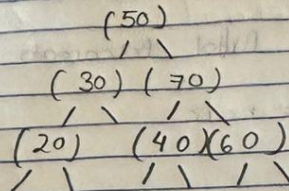 (50)
(30) (70)
(20) (40)(60)